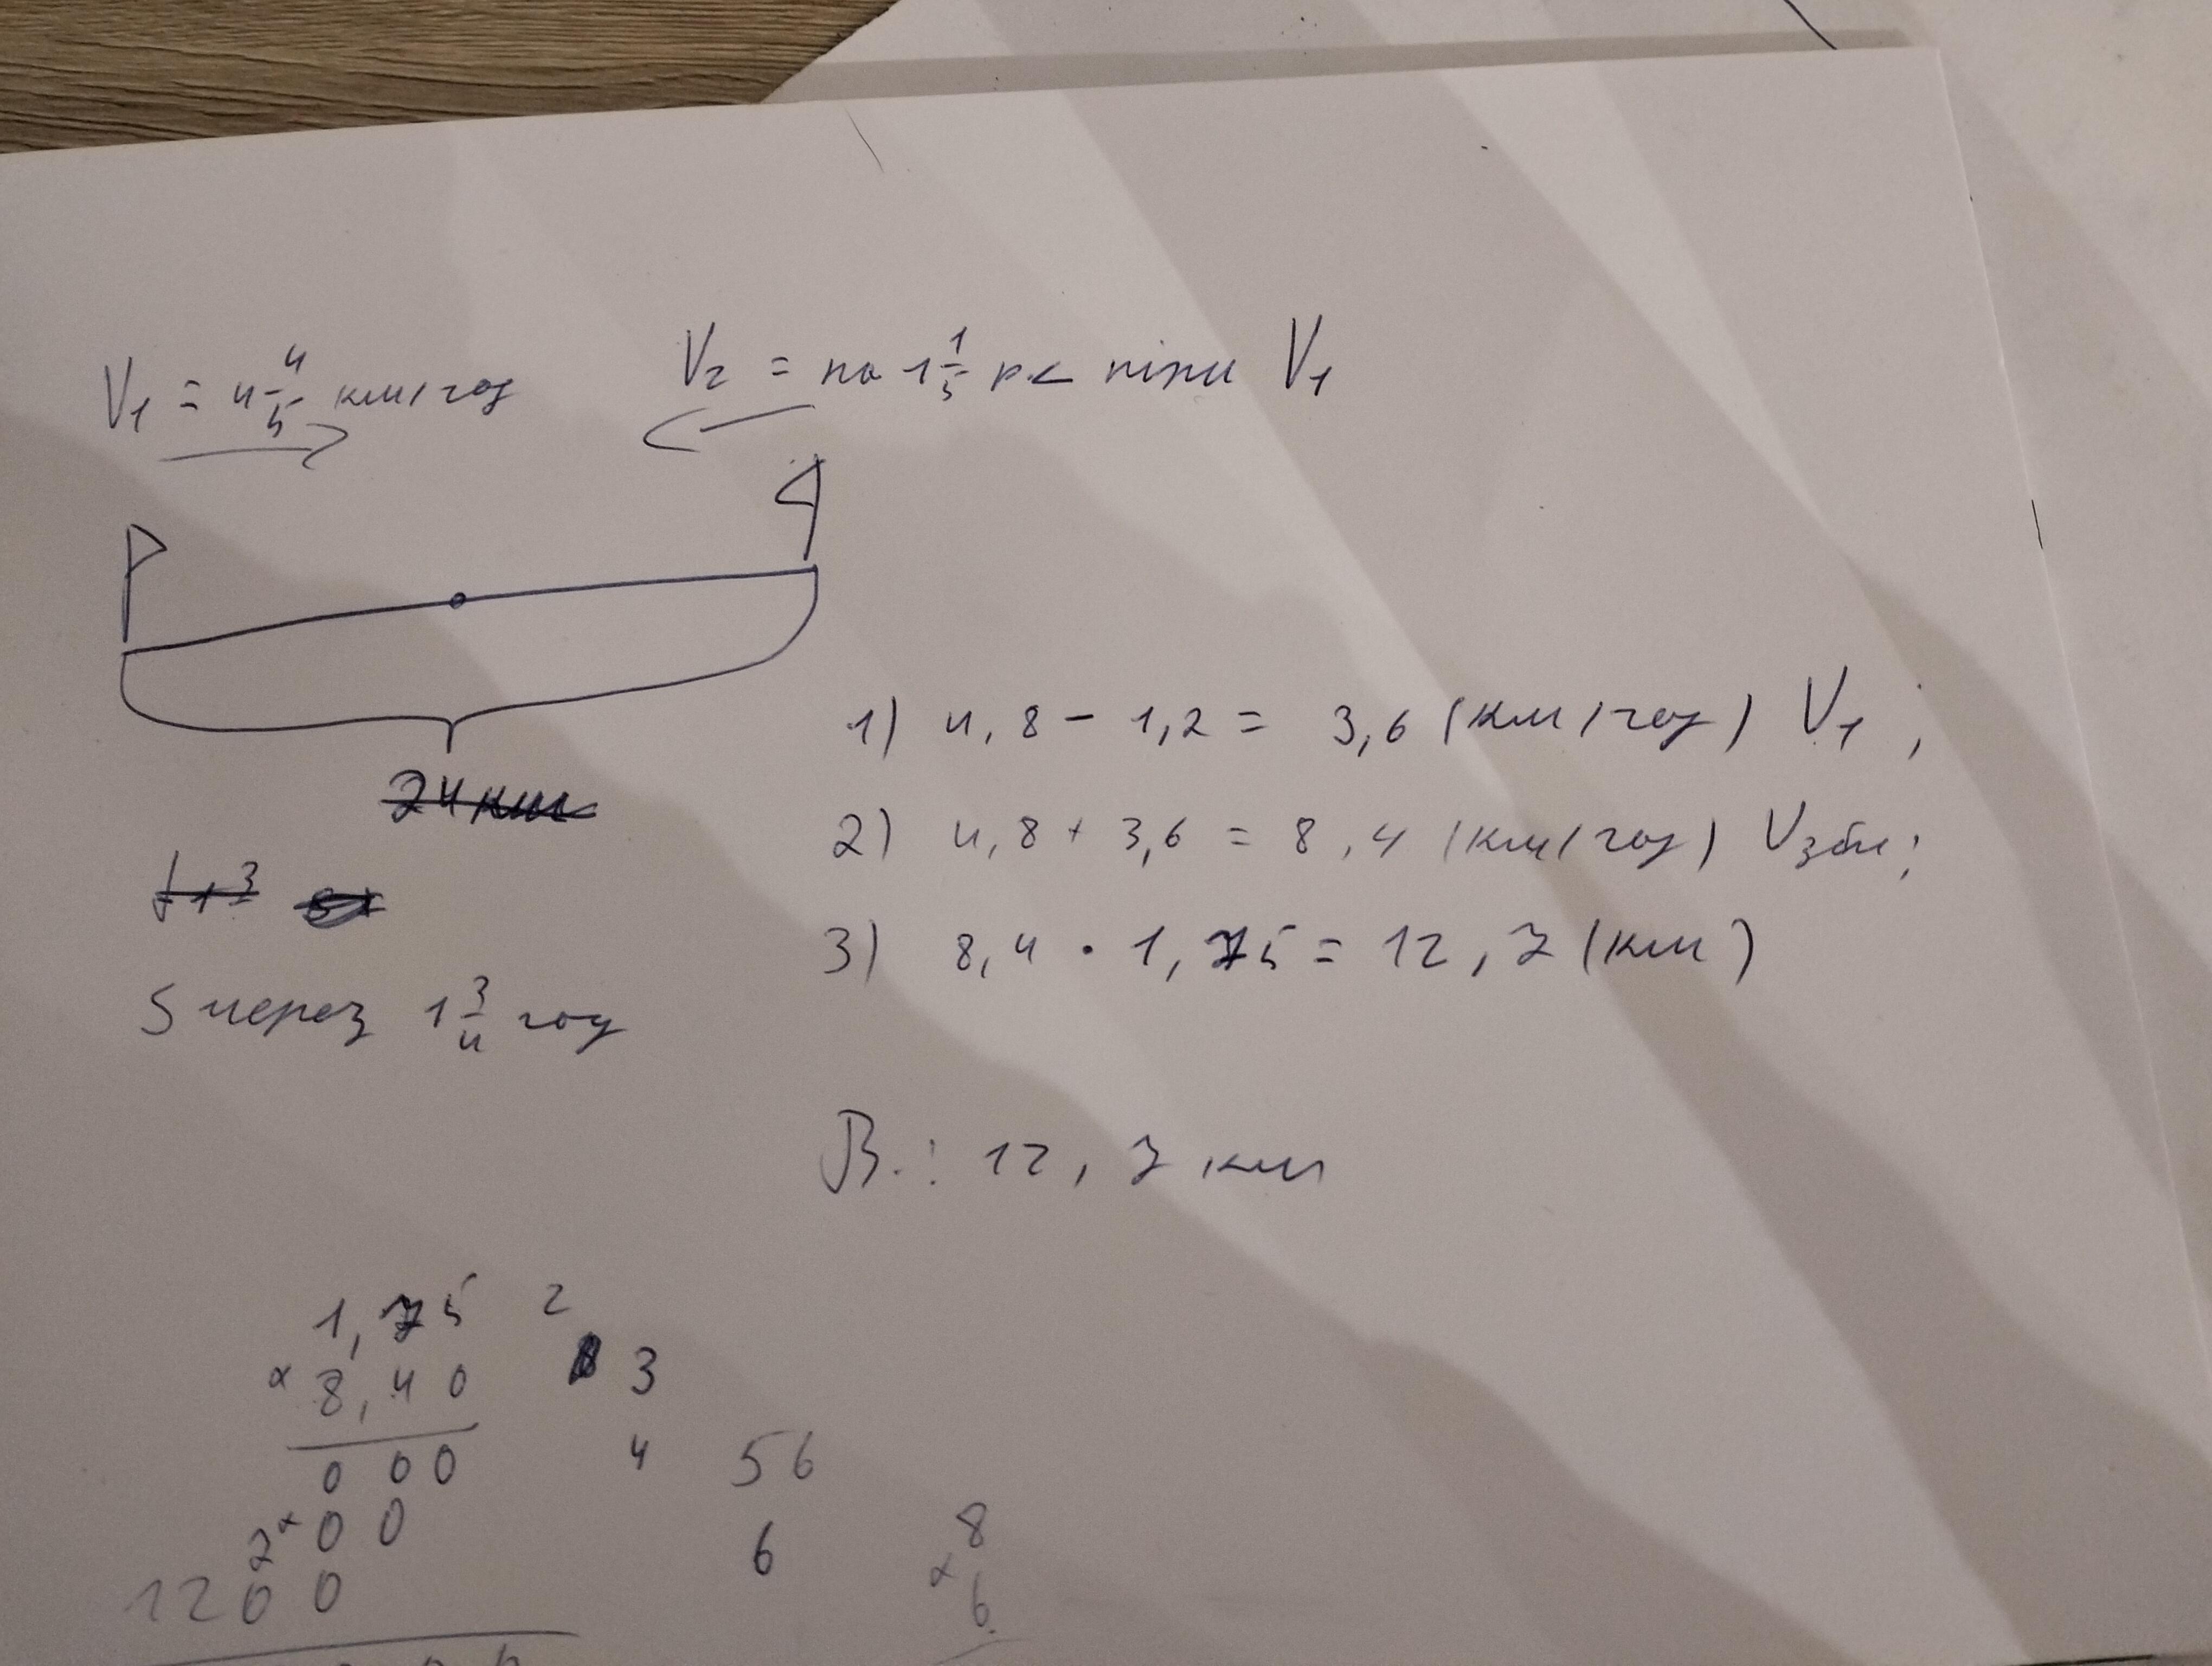 V₁ = 4 4/5 км/год
V₂ = на 1 1/5 р< ніжи V₁
24 км
S через 1 3/4 год
1) 4,8 - 1,2 = 3,6 (км/год) V₁;
2) 4,8 + 3,6 = 8,4 (км/год) Vзбл;
3) 8,4 · 1,75 = 12,7 (км)
В.: 12,7 км
1,75 2
x 8,40 3
000 4 56
7x00 6 8
1200 x 6